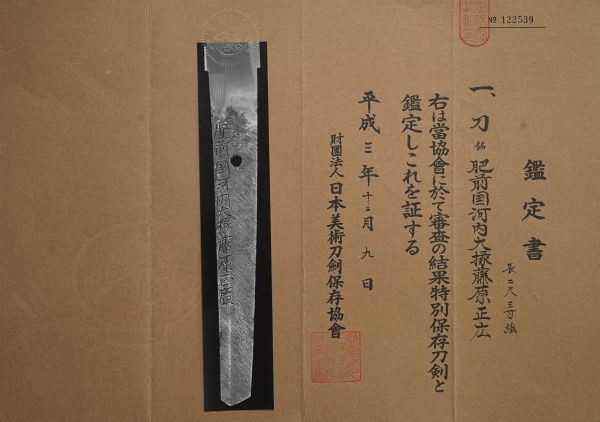 № 122539
鑑定書
一、刀 銘 肥前国河内大掾藤原正広
長二尺三寸強
右は當協會に於て審査の結果特別保存刀劍と
鑑定しこれを証する
平成三年十二月九日
財團法人 日本美術刀劍保存協會
肥前国河内大掾藤原正廣